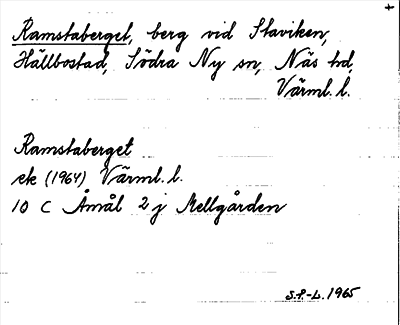 Ramstaberget, berg vid Slaviken,
Hällbostad, Södra Ny sn, Näs hd,
Värml. l.
Ramstaberget
ek (1964) Värml. l.
10 C Åmål 2 j Mellgården
S.F.-L. 1965